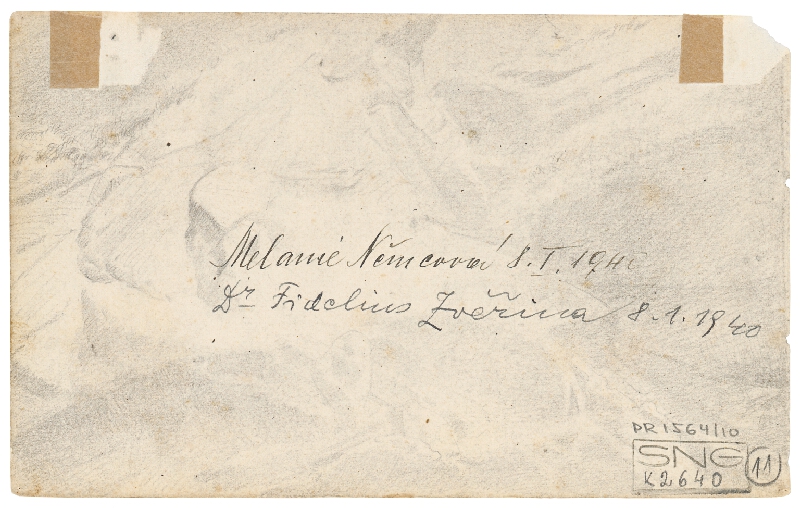 Melanie Němcová 8. I. 1940
Dr Fidelius Zvěřina 8.1.1940
PR1564/10
SNG
K2640
11